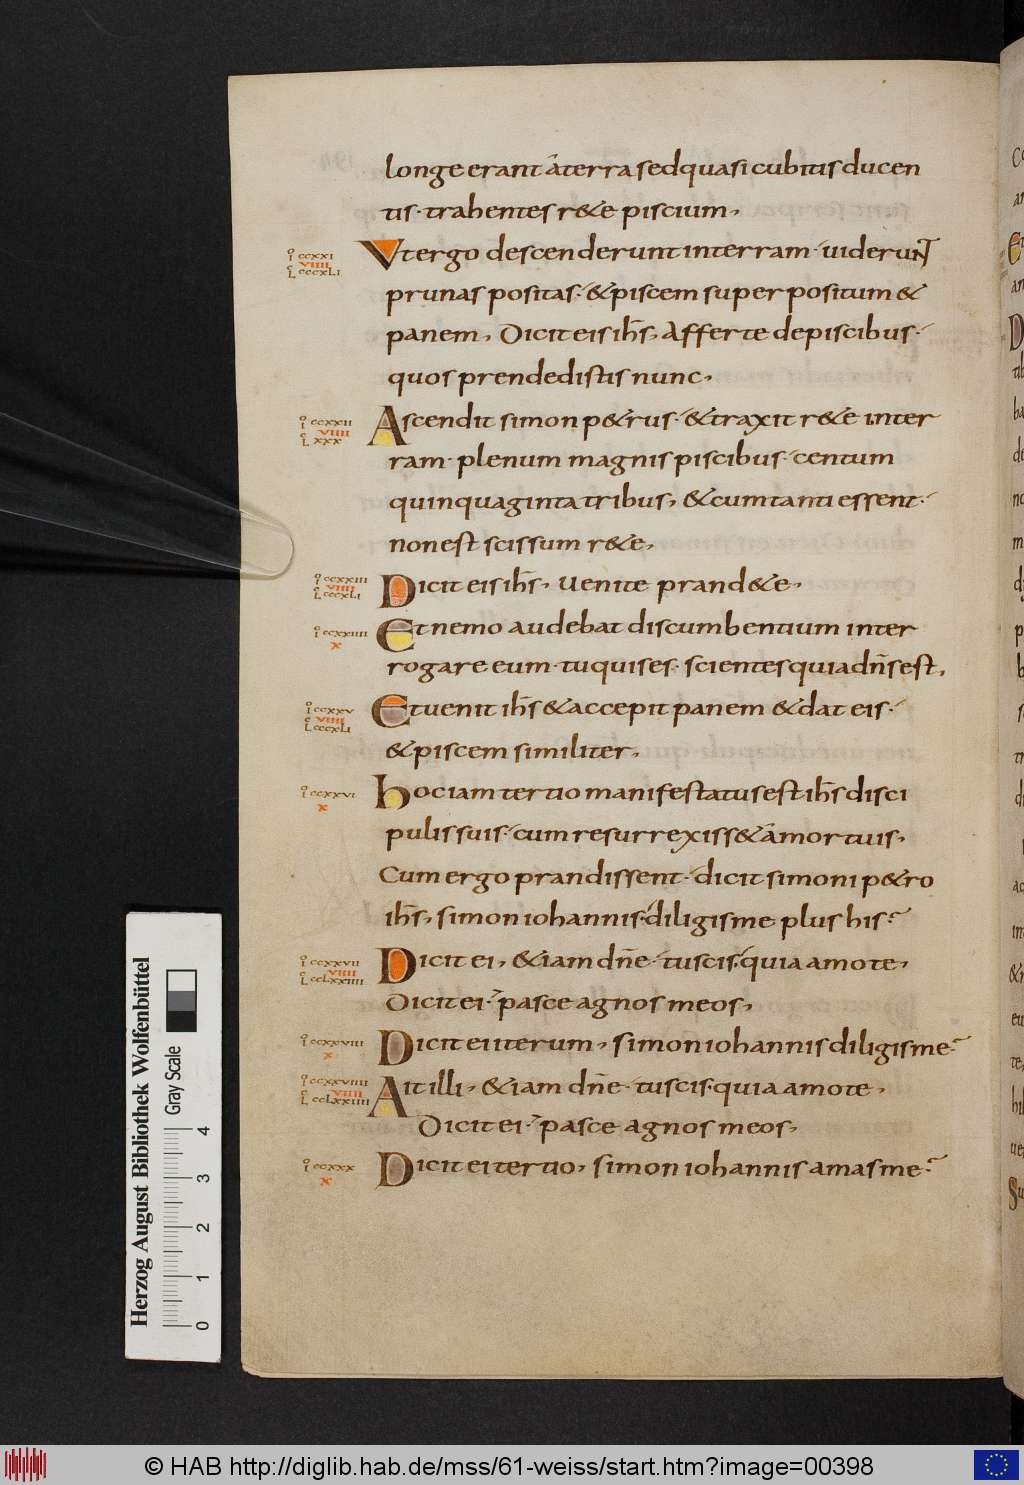 longe erant a terra sed quasi cubitis ducen
tis · trahentes r&e piscium,
Vt ergo descenderunt in terram · uiderunt
prunas positas · & piscem super positum &
panem, Dicit eis ihs, Afferte de piscibus ·
quos prendedistis nunc,
Ascendit simon p&rus · & traxit r&e in ter
ram · plenum magnis piscibus · centum
quinquaginta tribus, & cum tanti essent ·
non est scissum r&e,
Dicit eis ihs, Uenite prand&e,
Et nemo audebat discumbentium inter
rogare eum · tu quis es · scientes quia dns est,
Et uenit ihs & accepit panem & dat eis ·
& piscem similiter,
hoc iam tertio manifestatus est ihs disci
pulis suis · cum resurrexiss& a mortuis,
Cum ergo prandissent · dicit simoni p&ro
ihs, simon iohannis · diligis me plus his?
Dicit ei, &iam dne · tu scis · quia amo te,
Dicit ei · pasce agnos meos,
Dicit ei iterum, simon iohannis diligis me?
Ait illi, &iam dne · tu scis · quia amo te,
Dicit ei · pasce agnos meos,
Dicit ei tertio, simon iohannis amas me?
io ccxxi
viiii
Lc cccxLi
io ccxxii
viiii
Lc xxx
io ccxxiii
viiii
Lc cccxLi
io ccxxiiii
x
io ccxxv
viiii
Lc cccxLi
io ccxxvi
x
io ccxxvii
viiii
Lc ccLxxiiii
io ccxxviii
x
io ccxxviiii
viiii
Lc ccLxxiiii
io ccxxx
x
Herzog August Bibliothek Wolfenbüttel
Gray Scale
0 1 2 3 4
© HAB http://diglib.hab.de/mss/61-weiss/start.htm?image=00398